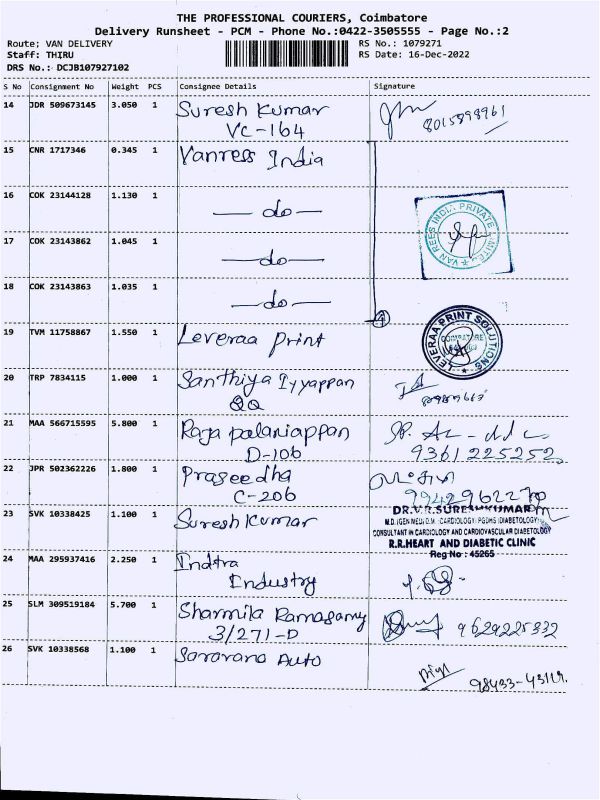 THE PROFESSIONAL COURIERS, Coimbatore
Delivery Runsheet - PCM - Phone No.:0422-3505555 - Page No.:2
Route; VAN DELIVERY
Staff: THIRU
DRS No.: DCJB107927102
RS No.: 1079271
RS Date: 16-Dec-2022
S No Consignment No Weight PCS Consignee Details Signature
14 JDR 509673145 3.050 1 Suresh Kumar
VC-164
8015898961
15 CNR 1717346 0.345 1 Vanress India
16 COK 23144128 1.130 1 — do —
VAN REES INDIA PRIVATE LIMITED
17 COK 23143862 1.045 1 — do —
18 COK 23143863 1.035 1 — do —
4
19 TVM 11758867 1.550 1 Leveraa Print
LEVERAA PRINT SOLUTIONS
COIMBATORE
20 TRP 7834115 1.000 1 Santhiya Iyyappan
QQ
21 MAA 566715595 5.800 1 Raja palaniappan
D-106
9361225252
22 JPR 502362226 1.800 1 Praseedha
C-206
23 SVK 10338425 1.100 1 Suresh Kumar
DR.V.R.SURESHKUMAR
CONSULTANT IN CARDIOLOGY AND CARDIOVASCULAR DIABETOLOGY
R.R.HEART AND DIABETIC CLINIC
Reg No : 45265
24 MAA 295937416 2.250 1 Indtra
Industry
25 SLM 309519184 5.700 1 Sharmila Ramasamy
3/271-D
9629225332
26 SVK 10338568 1.100 1 Saravana Auto